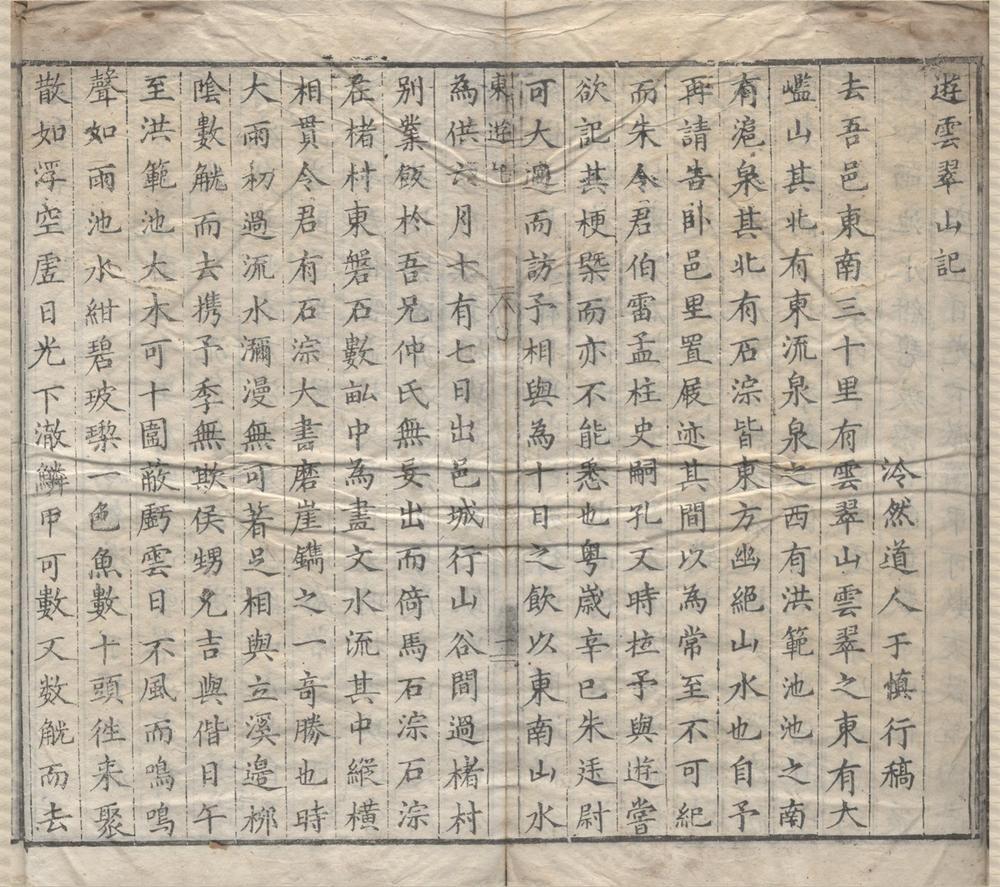 遊雲翠山記
泠然道人于慎行稿
去吾邑東南三十里有雲翠山雲翠之東有大
㠥山其北有東流泉泉之西有洪範池池之南
有滬泉其北有石淙皆東方幽絕山水也自予
再請告卧邑里置屐迹其間以為常至不可紀
而朱令君伯雷孟柱史嗣孔又時拉予與遊嘗
欲記其梗槩而亦不能悉也粤歲辛巳朱廷尉
可大過而訪予相與為十日之飲以東南山水
東遊
為供六月十有七日出邑城行山谷間過楮村
別業飯於吾兄仲氏無妄出而倚馬石淙石淙
在楮村東磐石數畝中為畫文水流其中縱橫
相貫令君有石淙大書磨崖鐫之一奇勝也時
大雨初過流水瀰漫無可著足相與立溪邊柳
陰數觥而去携予季無欺侯甥兄吉與偕日午
至洪範池大木可十圍蔽虧雲日不風而鳴鳴
聲如雨池水紺碧玻瓈一色魚數十頭徃来聚
散如浮空虛日光下澈鱗甲可數又数觥而去